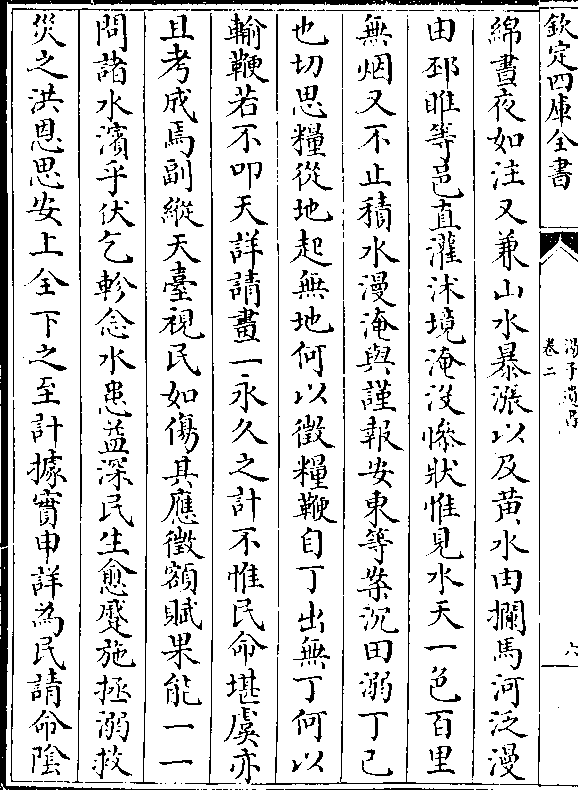 欽定四庫全書
湯子遺書
卷二
六
綿晝夜如注又兼山水暴漲以及黄水由攔馬河泛漫
由邳睢等邑直灌沭境淹没慘狀惟見水天一色百里
無烟又不止積水漫淹與謹報安東等案沉田溺丁已
也切思糧從地起無地何以徵糧鞭自丁出無丁何以
輸鞭若不叩天詳請畫一永久之計不惟民命堪虞亦
且考成焉副縱天臺視民如傷其應徵額賦果能一一
問諸水濱乎伏乞軫念水患益深民生愈蹙施拯溺救
災之洪恩思安上全下之至計據實申詳為民請命隂